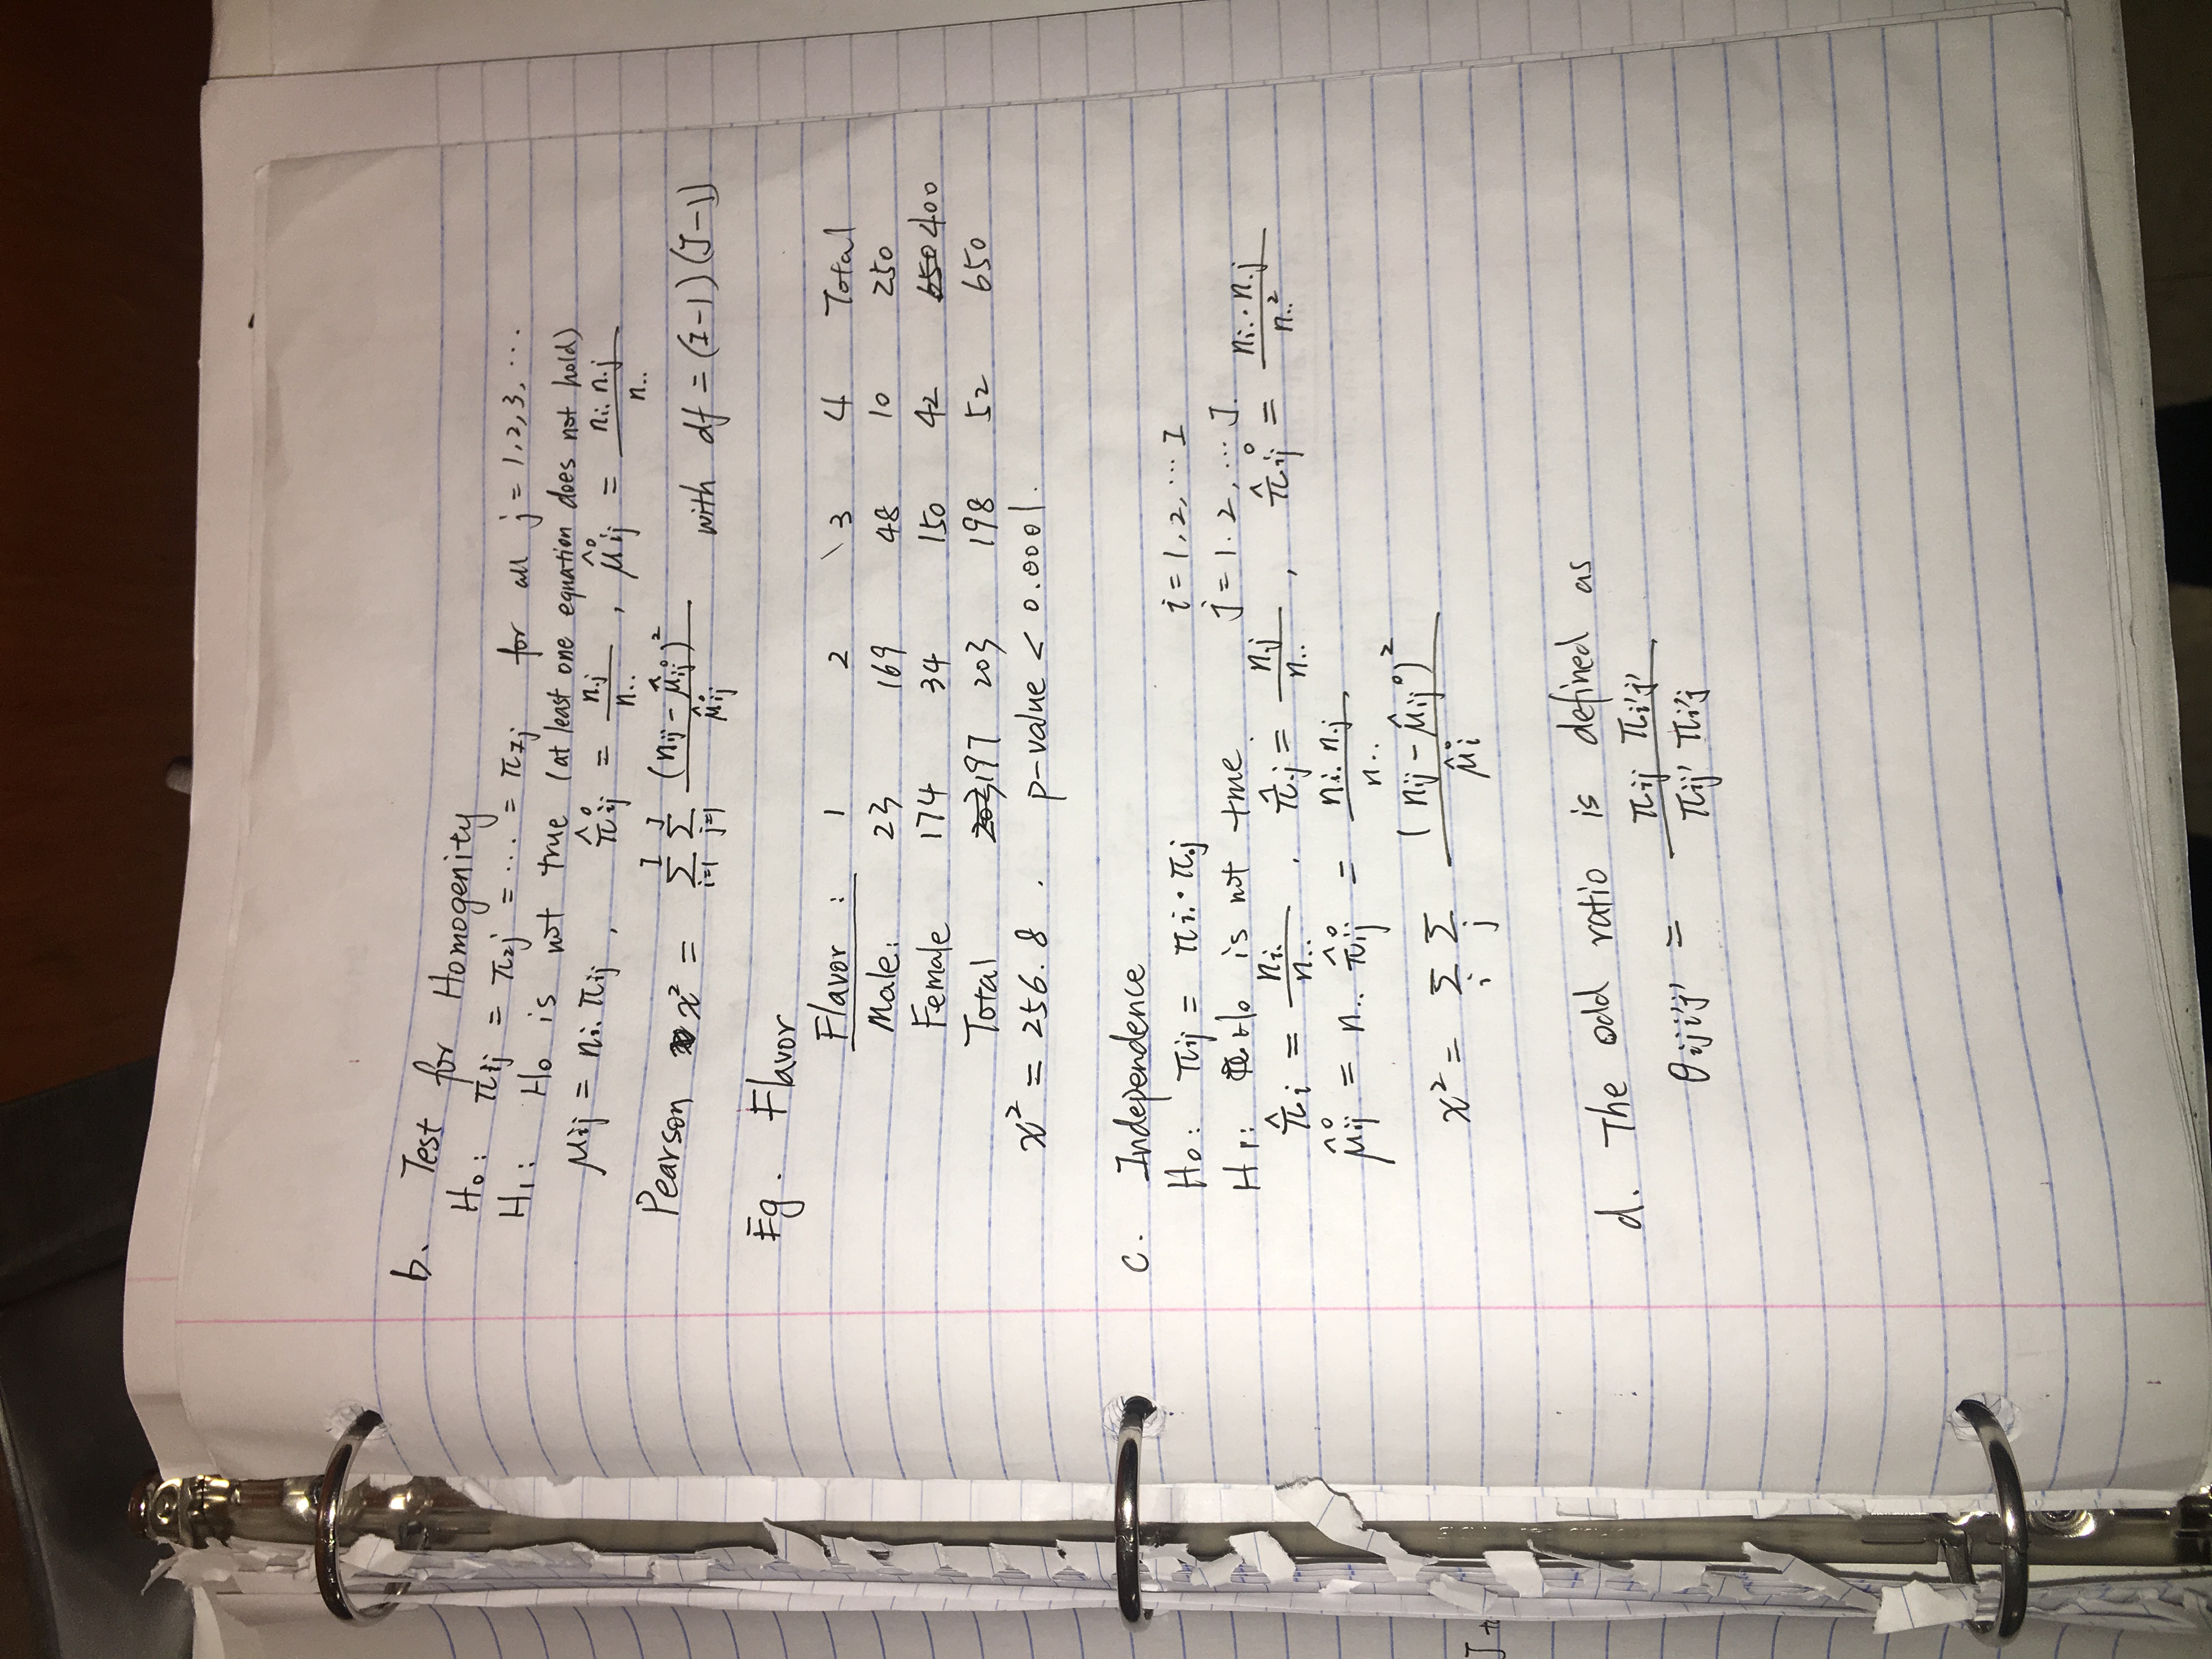 b. Test for Homogenity
H₀: π₁ⱼ = π₂ⱼ = ... = π_Ij for all j = 1, 2, 3, ...
H₁: H₀ is not true (at least one equation does not hold)
μij = ni. πij , π̂⁰ij = n.j / n.. , μ̂⁰ij = ni. n.j / n..
Pearson x² = Σ_{i=1}^{I} Σ_{j=1}^{J} (nij - μ̂⁰ij)² / μ̂⁰ij with df = (I-1)(J-1)
Eg. Flavor
Flavor : 1 2 3 4 Total
Male: 23 169 48 10 250
Female 174 34 150 42 650 400
Total 203 197 203 198 52 650
x² = 256.8 . p-value < 0.0001.
c. Independence
H₀: πij = πi. · π.j i = 1, 2, ... I
H₁: H₀ is not true. j = 1. 2, ... J.
π̂i = ni. / n.. , π̂.j = n.j / n.. , π̂⁰ij = ni. · n.j / n..²
μ̂⁰ij = n.. π̂⁰ij = ni. n.j / n..
x² = Σ_i Σ_j (nij - μ̂ij⁰)² / μ̂⁰i
d. The odd ratio is defined as
θiji'j' = πij πi'j' / πij' πi'j
J